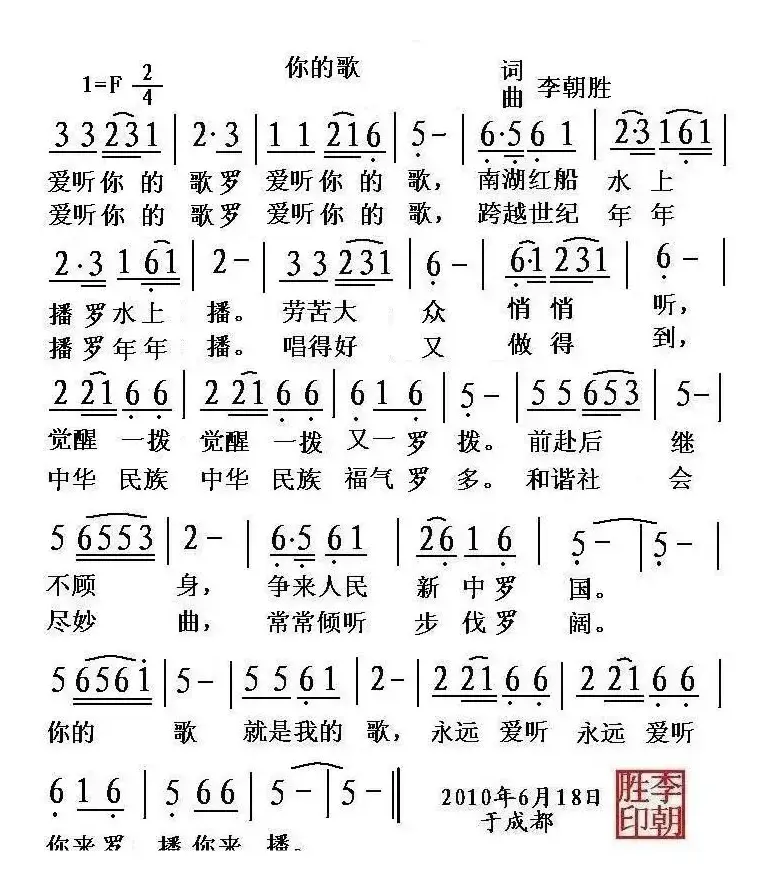 你的歌
1=F 2/4
词 曲 李朝胜
3 3 2 3 1 | 2· 3 | 1 1 2 1 6 | 5 - | 6· 5 6 1 | 2· 3 1 6 1 |
爱听你 的 歌罗 爱听你 的 歌, 南湖红船 水 上
爱听你 的 歌罗 爱听你 的 歌, 跨越世纪 年 年
2· 3 1 6 1 | 2 - | 3 3 2 3 1 | 6 - | 6· 1 2 3 1 | 6 - |
播 罗水上 播。 劳苦大 众 悄 悄 听,
播 罗年年 播。 唱得好 又 做 得 到,
2 2 1 6 6 | 2 2 1 6 6 | 6 1 6 | 5 - | 5 5 6 5 3 | 5 - |
觉醒 一拨 觉醒 一拨 又一 罗 拨。 前赴后 继
中华 民族 中华 民族 福气 罗 多。 和谐社 会
5 6 5 5 3 | 2 - | 6· 5 6 1 | 2 6 1 6 | 5 - | 5 - |
不顾 身, 争来人民 新 中 罗 国。
尽妙 曲, 常常倾听 步 伐 罗 阔。
5 6 5 6 1 | 5 - | 5 5 6 1 | 2 - | 2 2 1 6 6 | 2 2 1 6 6 |
你的 歌 就是我的 歌, 永远 爱听 永远 爱听
6 1 6 | 5 6 6 | 5 - | 5 - ‖
你来罗 播你来 播。
2010年6月18日
于成都
李朝胜印